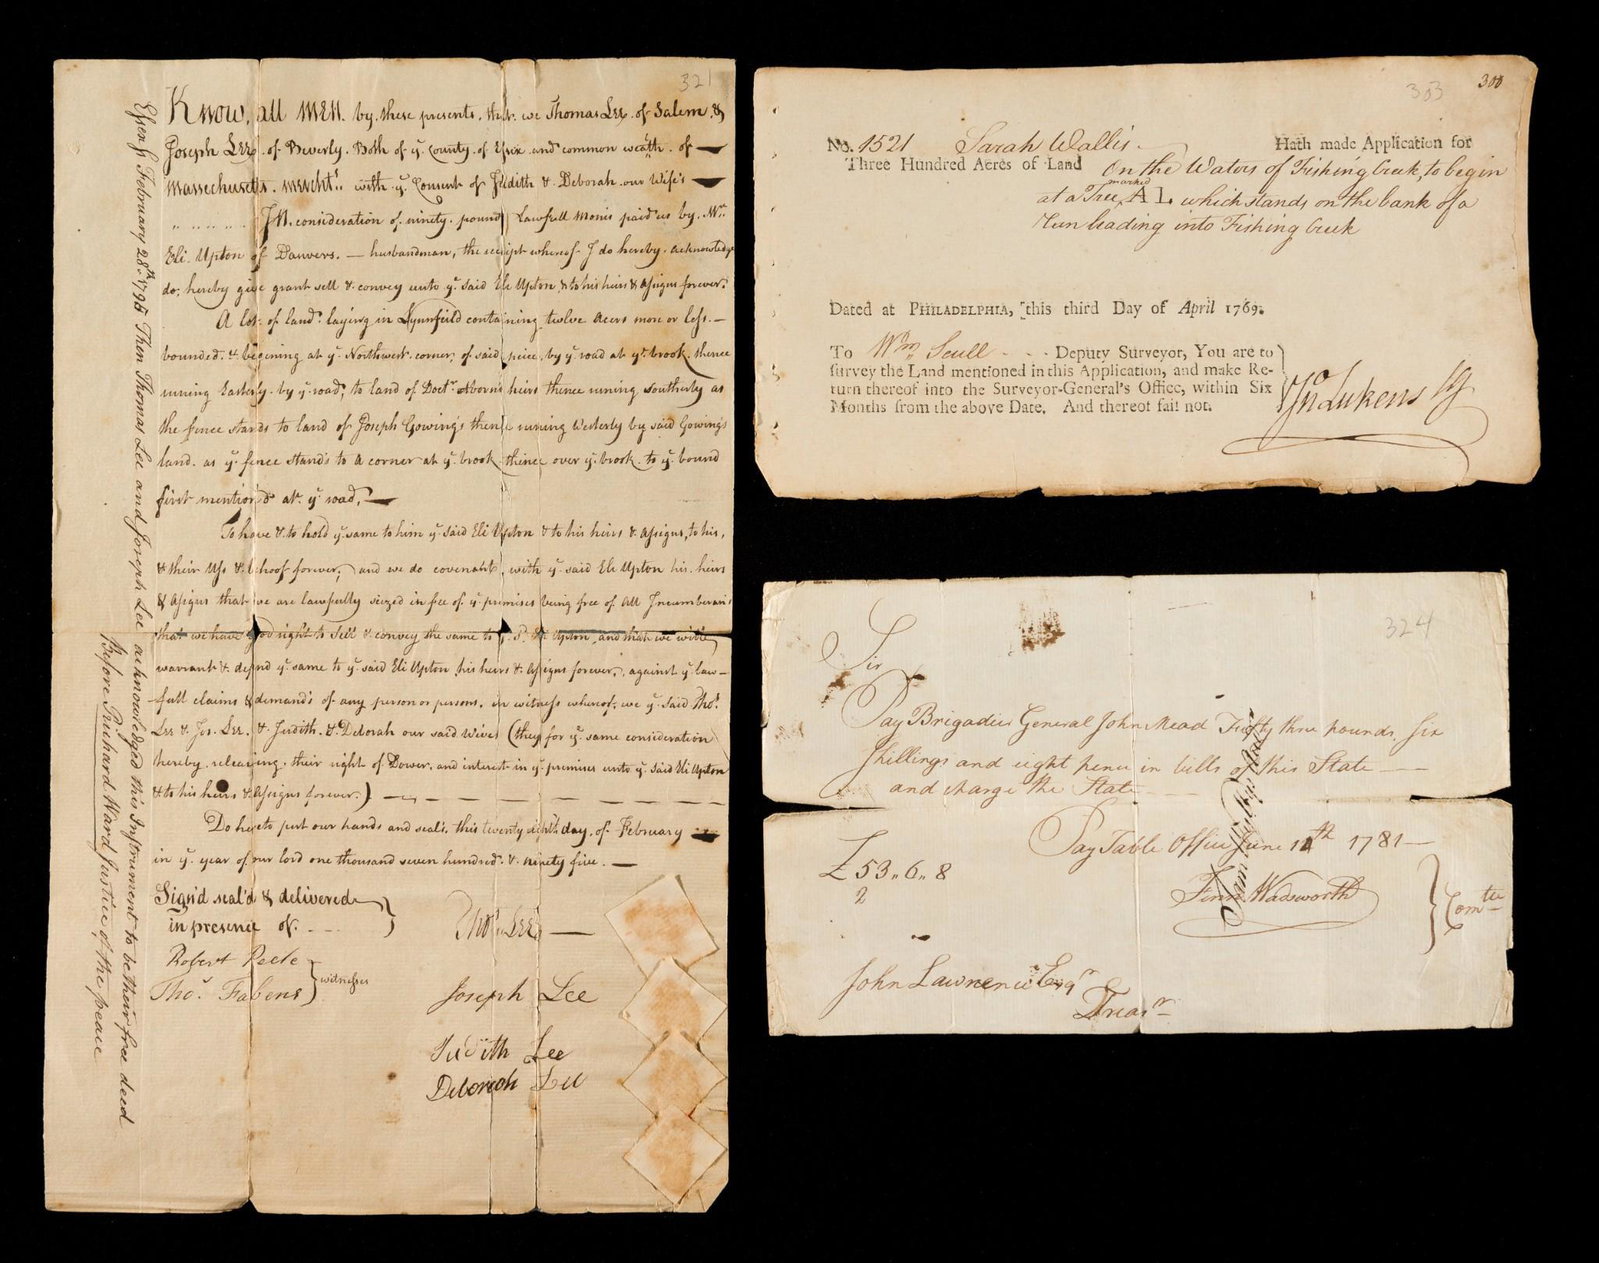 321
Know, all men. by these presents, that. we Thomas Lee. of Salem. &
Joseph Lee. of Beverly. Both of yͤ. County. of Essix and common weath. of
Massechusetts. mercht.ˢ with yͤ. Consent of Judith & Deborah our Wife's
In. consideration of. ninety. pound Lawfull monis paid us by. Mr.
Eli. Upton of Danvers. — husbandman, the receipt whereof I do hereby. acknowledge
do; hereby give grant sell & convey unto yͤ. said Eli Upton & to his heirs & Assigns forever.
A lot of land. laying in Lynnfield containing twelve acers more or less.—
bounded. & begening at yͤ. Northwest. corner, of said peice, by yͤ. road at yͤ. brook. thence
runing Easterly. by yͤ. road, to land of Doctʳ. osborn's heirs thence runing Southerly as
the fence stands to land of Joseph Gowing's thence runing Westerly by said Gowing's
land. as yͤ. fence stands to a corner at yͤ. brook thence over yͤ. brook. to yͤ. bound
first mentiond at. yͤ. road,
To have & to hold yͤ. same to him yͤ. said Eli Upton & to his heirs & Assigns, to his,
& their Use & behoof forever, and we do covenant, with yͤ. said Eli Upton his. heirs
& Assigns that we are lawfully seized in fee of. yͤ. premises being free of all Incumberan's
that we have good right to Sell & convey the same to yͤ. Sᵈ. Eli Upton, and that we will
warrant & defend yͤ. same to yͤ. said Eli Upton, his heirs & Assigns forever. against yͤ. law-
full claims & demand's of any person or persons. in witness whereof, we yͤ. said Thoˢ.
Lee & Jos. Lee. & Judith. & Deborah our said Wives (they for yͤ. same consideration
hereby. releasing. their right of Dower. and interest in yͤ. premises unto yͤ. Said Eli Upton
& to his heirs & Assigns forever.)
Do hereto put our hands and seal's. this twenty eighth day. of February
in yͤ. year of our lord one thousand seven hundred. & ninety five.—
Sign'd seal'd & delivered
in presence of. - - -
Robert Peele
Thoˢ. Fabens } witnesses
Thoˢ. Lee
Joseph Lee
Judith Lee
Deborah Lee
Essex Ss. February 28th. 1795 Then Thomas Lee and Joseph Lee acknowledged this Instrument to be their free deed
Before Richard Ward Justice of the peace
303
300
No. 1521 Sarah Wallis. Hath made Application for
Three Hundred Acres of Land On the Waters of Fishing Creek, to begin
at a Tree, marked A 1. which stands on the bank of a
Run leading into Fishing Creek
Dated at PHILADELPHIA, this third Day of April 1769.
To Wm. Scull - - - Deputy Surveyor, You are to
survey the Land mentioned in this Application, and make Re-
turn thereof into the Surveyor-General's Office, within Six
Months from the above Date. And thereof fail not.
Jno Lukens SG
324
Sir
Pay Brigadier General John Mead Fifty three pounds, six
shillings and eight pence in bills of this State
and charge the State
Pay Table Office June 12th 1781—
£53,,6,,8
2
Fenn. Wadsworth } Comtee
John Lawrence Esqr
Treasr